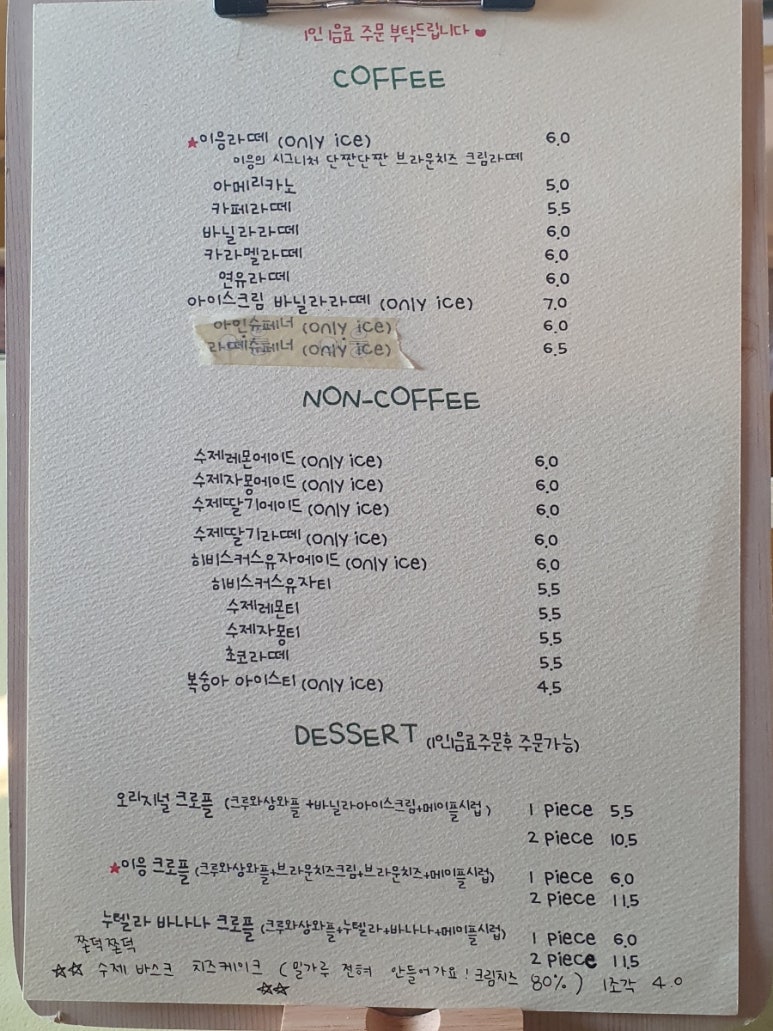 1인 1음료 주문 부탁드립니다 ♥
COFFEE
★이응라떼 (only ice) 6.0
이응의 시그니처 단짠단짠 브라운치즈 크림라떼
아메리카노 5.0
카페라떼 5.5
바닐라라떼 6.0
카라멜라떼 6.0
연유라떼 6.0
아이스크림 바닐라라떼 (only ice) 7.0
아인슈페너 (only ice) 6.0
라떼슈페너 (only ice) 6.5
NON-COFFEE
수제레몬에이드 (only ice) 6.0
수제자몽에이드 (only ice) 6.0
수제딸기에이드 (only ice) 6.0
수제딸기라떼 (only ice) 6.0
히비스커스유자에이드 (only ice) 6.0
히비스커스유자티 5.5
수제레몬티 5.5
수제자몽티 5.5
초코라떼 5.5
복숭아 아이스티 (only ice) 4.5
DESSERT (1인1음료주문후 주문가능)
오리지널 크로플 (크루와상와플+바닐라아이스크림+메이플시럽) 1 piece 5.5
2 piece 10.5
★이응 크로플 (크루와상와플+브라운치즈크림+브라운치즈+메이플시럽) 1 piece 6.0
2 piece 11.5
누텔라 바나나 크로플 (크루와상와플+누텔라+바나나+메이플시럽) 1 piece 6.0
2 piece 11.5
쫀덕쫀덕
☆☆ 수제 바스크 치즈케이크 (밀가루 전혀 안들어가요! 크림치즈 80%) 1조각 4.0
☆☆